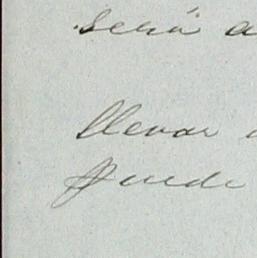 será a
llevar
puede